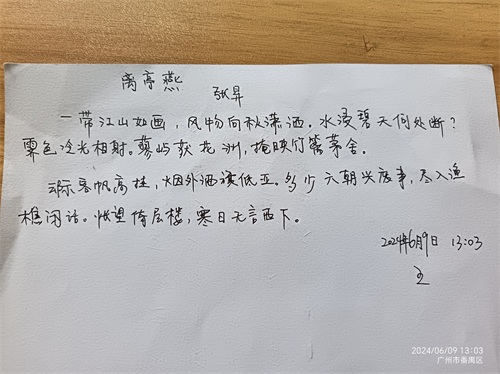 离亭燕
张昇
一带江山如画，风物向秋潇洒。水浸碧天何处断？
霁色冷光相射。蓼屿荻花洲，掩映竹篱茅舍。
云际客帆高挂，烟外酒旗低亚。多少六朝兴废事，尽入渔
樵闲话。怅望倚层楼，寒日无言西下。
2024年6月9日 13:03
王
2024/06/09 13:03
广州市番禺区